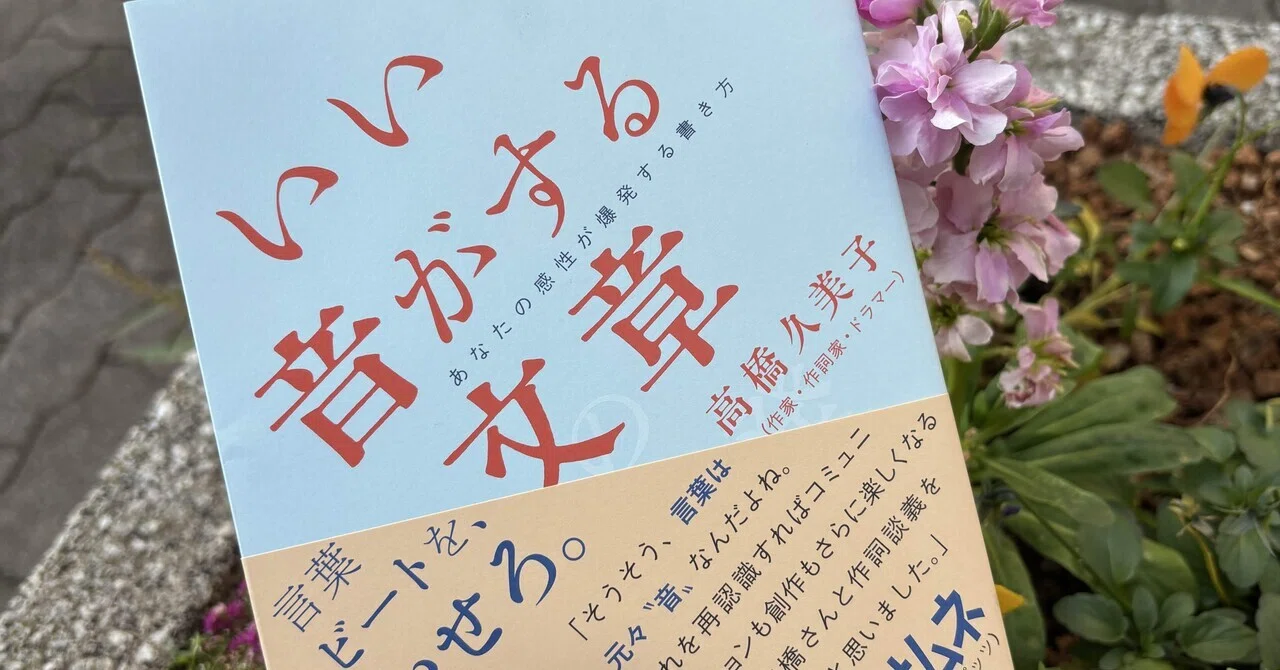 いい
音がする
文章
あなたの感性が爆発する書き方
高橋久美子
(作家・作詞家・ドラマー)
言葉
ビートを、
せろ。
「そうそう、言葉は
元々〝音〟なんだよね。
れを再認識すればコミュニ
ョンも創作もさらに楽しくなる
橋さんと作詞談義を
と思いました。」
ムネ
ッツ)